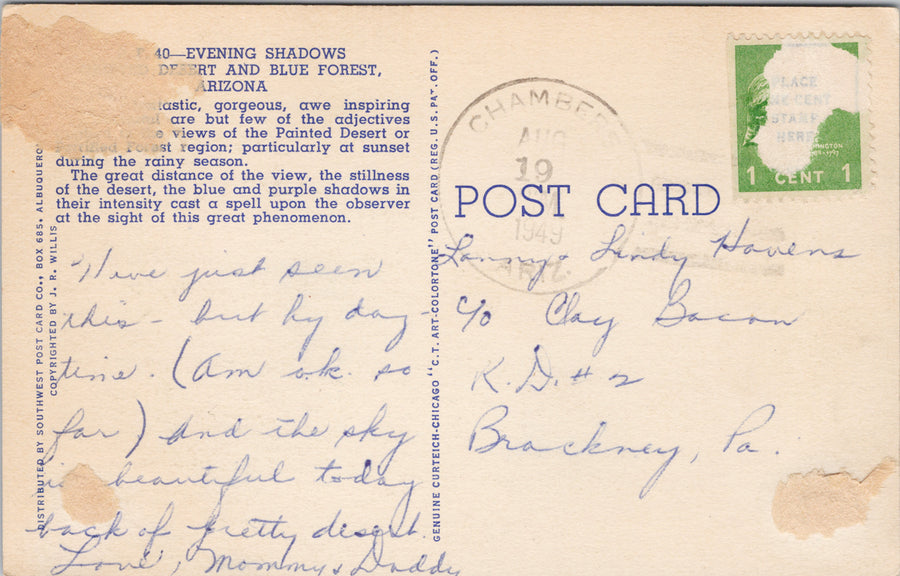 40—EVENING SHADOWS
DESERT AND BLUE FOREST,
ARIZONA
gorgeous, awe inspiring
are but few of the adjectives
views of the Painted Desert or
region; particularly at sunset
during the rainy season.
The great distance of the view, the stillness
of the desert, the blue and purple shadows in
their intensity cast a spell upon the observer
at the sight of this great phenomenon.
DISTRIBUTED BY SOUTHWEST POST CARD CO., BOX 685, ALBUQUERQ
COPYRIGHTED BY J. R. WILLIS
Have just seen
this - but by day-
time. (Am o.k. so
far) And the sky
is beautiful today
back of pretty desert.
Love, Mommy & Daddy
GENUINE CURTEICH-CHICAGO "C.T. ART-COLORTONE" POST CARD (REG. U.S. PAT. OFF.)
CHAMBER
AUG
19
M
1949
ARIZ.
PLACE
CENT
STAMP
HERE
INGTON
1 CENT 1
POST CARD
Lanny & Lindy Havens
c/o Clay Bacon
R.D. # 2
Brackney, Pa.